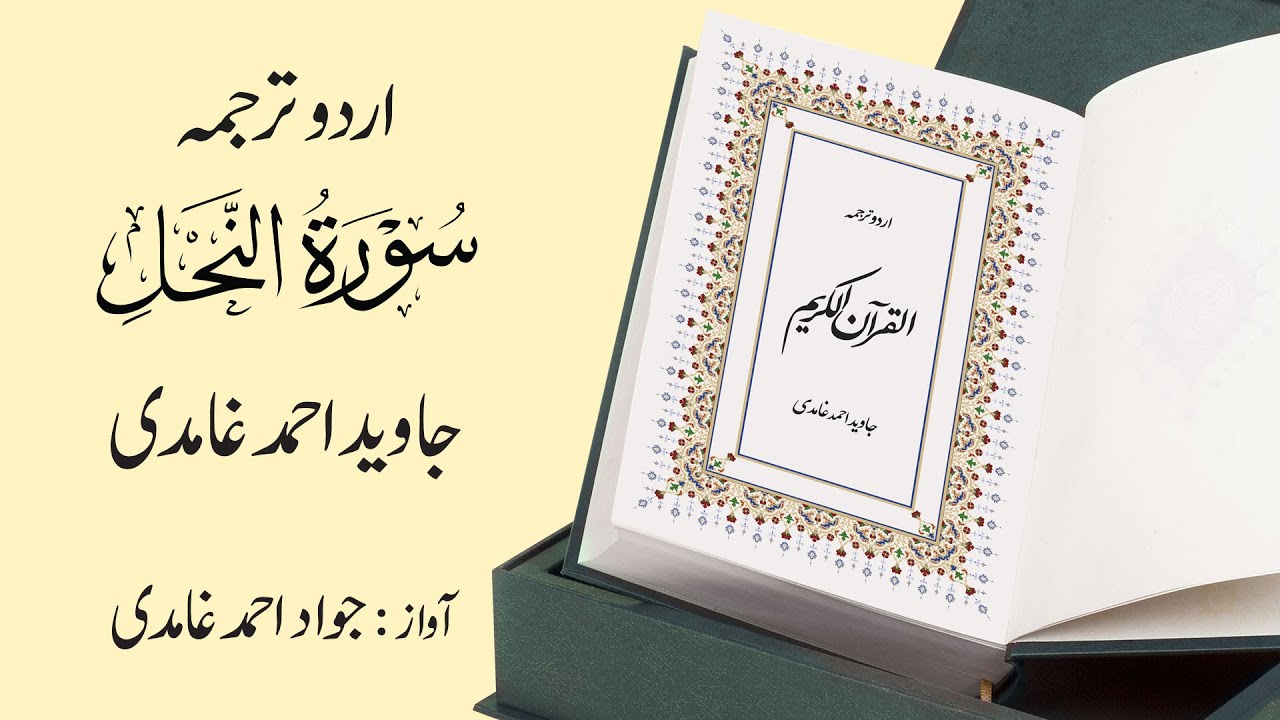 اردو ترجمہ
سُوْرَةُ النَّحْلِ
جاوید احمد غامدی
آواز : جواد احمد غامدی
اردو ترجمہ
القرآن الکریم
جاوید احمد غامدی